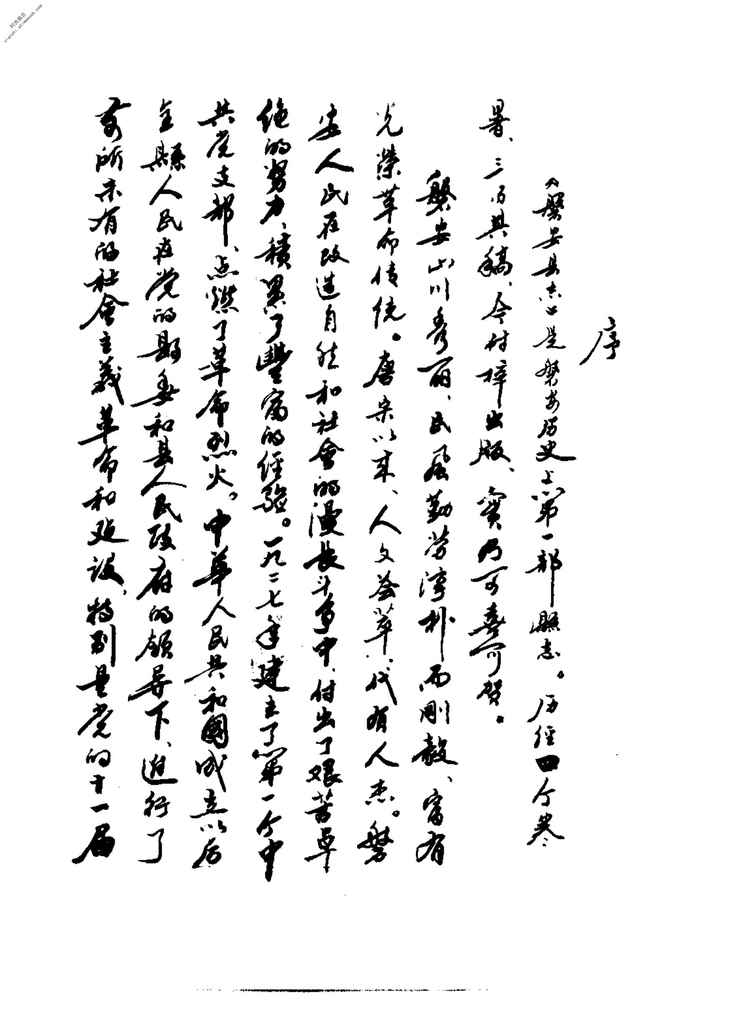 序
《磐安县志》是磐安历史上第一部縣志。历经四个寒
暑、三易其稿、今付梓出版、實乃可喜可贺。
磐安山川秀丽、民风勤劳淳朴而刚毅、富有
光榮革命传统。唐宋以来、人文荟萃、代有人杰。磐
安人民在改造自然和社會的漫長斗争中、付出了艰苦卓
绝的努力、積累了豐富的经驗。一九二七年建立了第一个中
共党支部、点燃了革命烈火。中華人民共和國成立以后
全縣人民在党的縣委和县人民政府的领导下、进行了
前所未有的社會主義革命和建设、特别是党的十一届